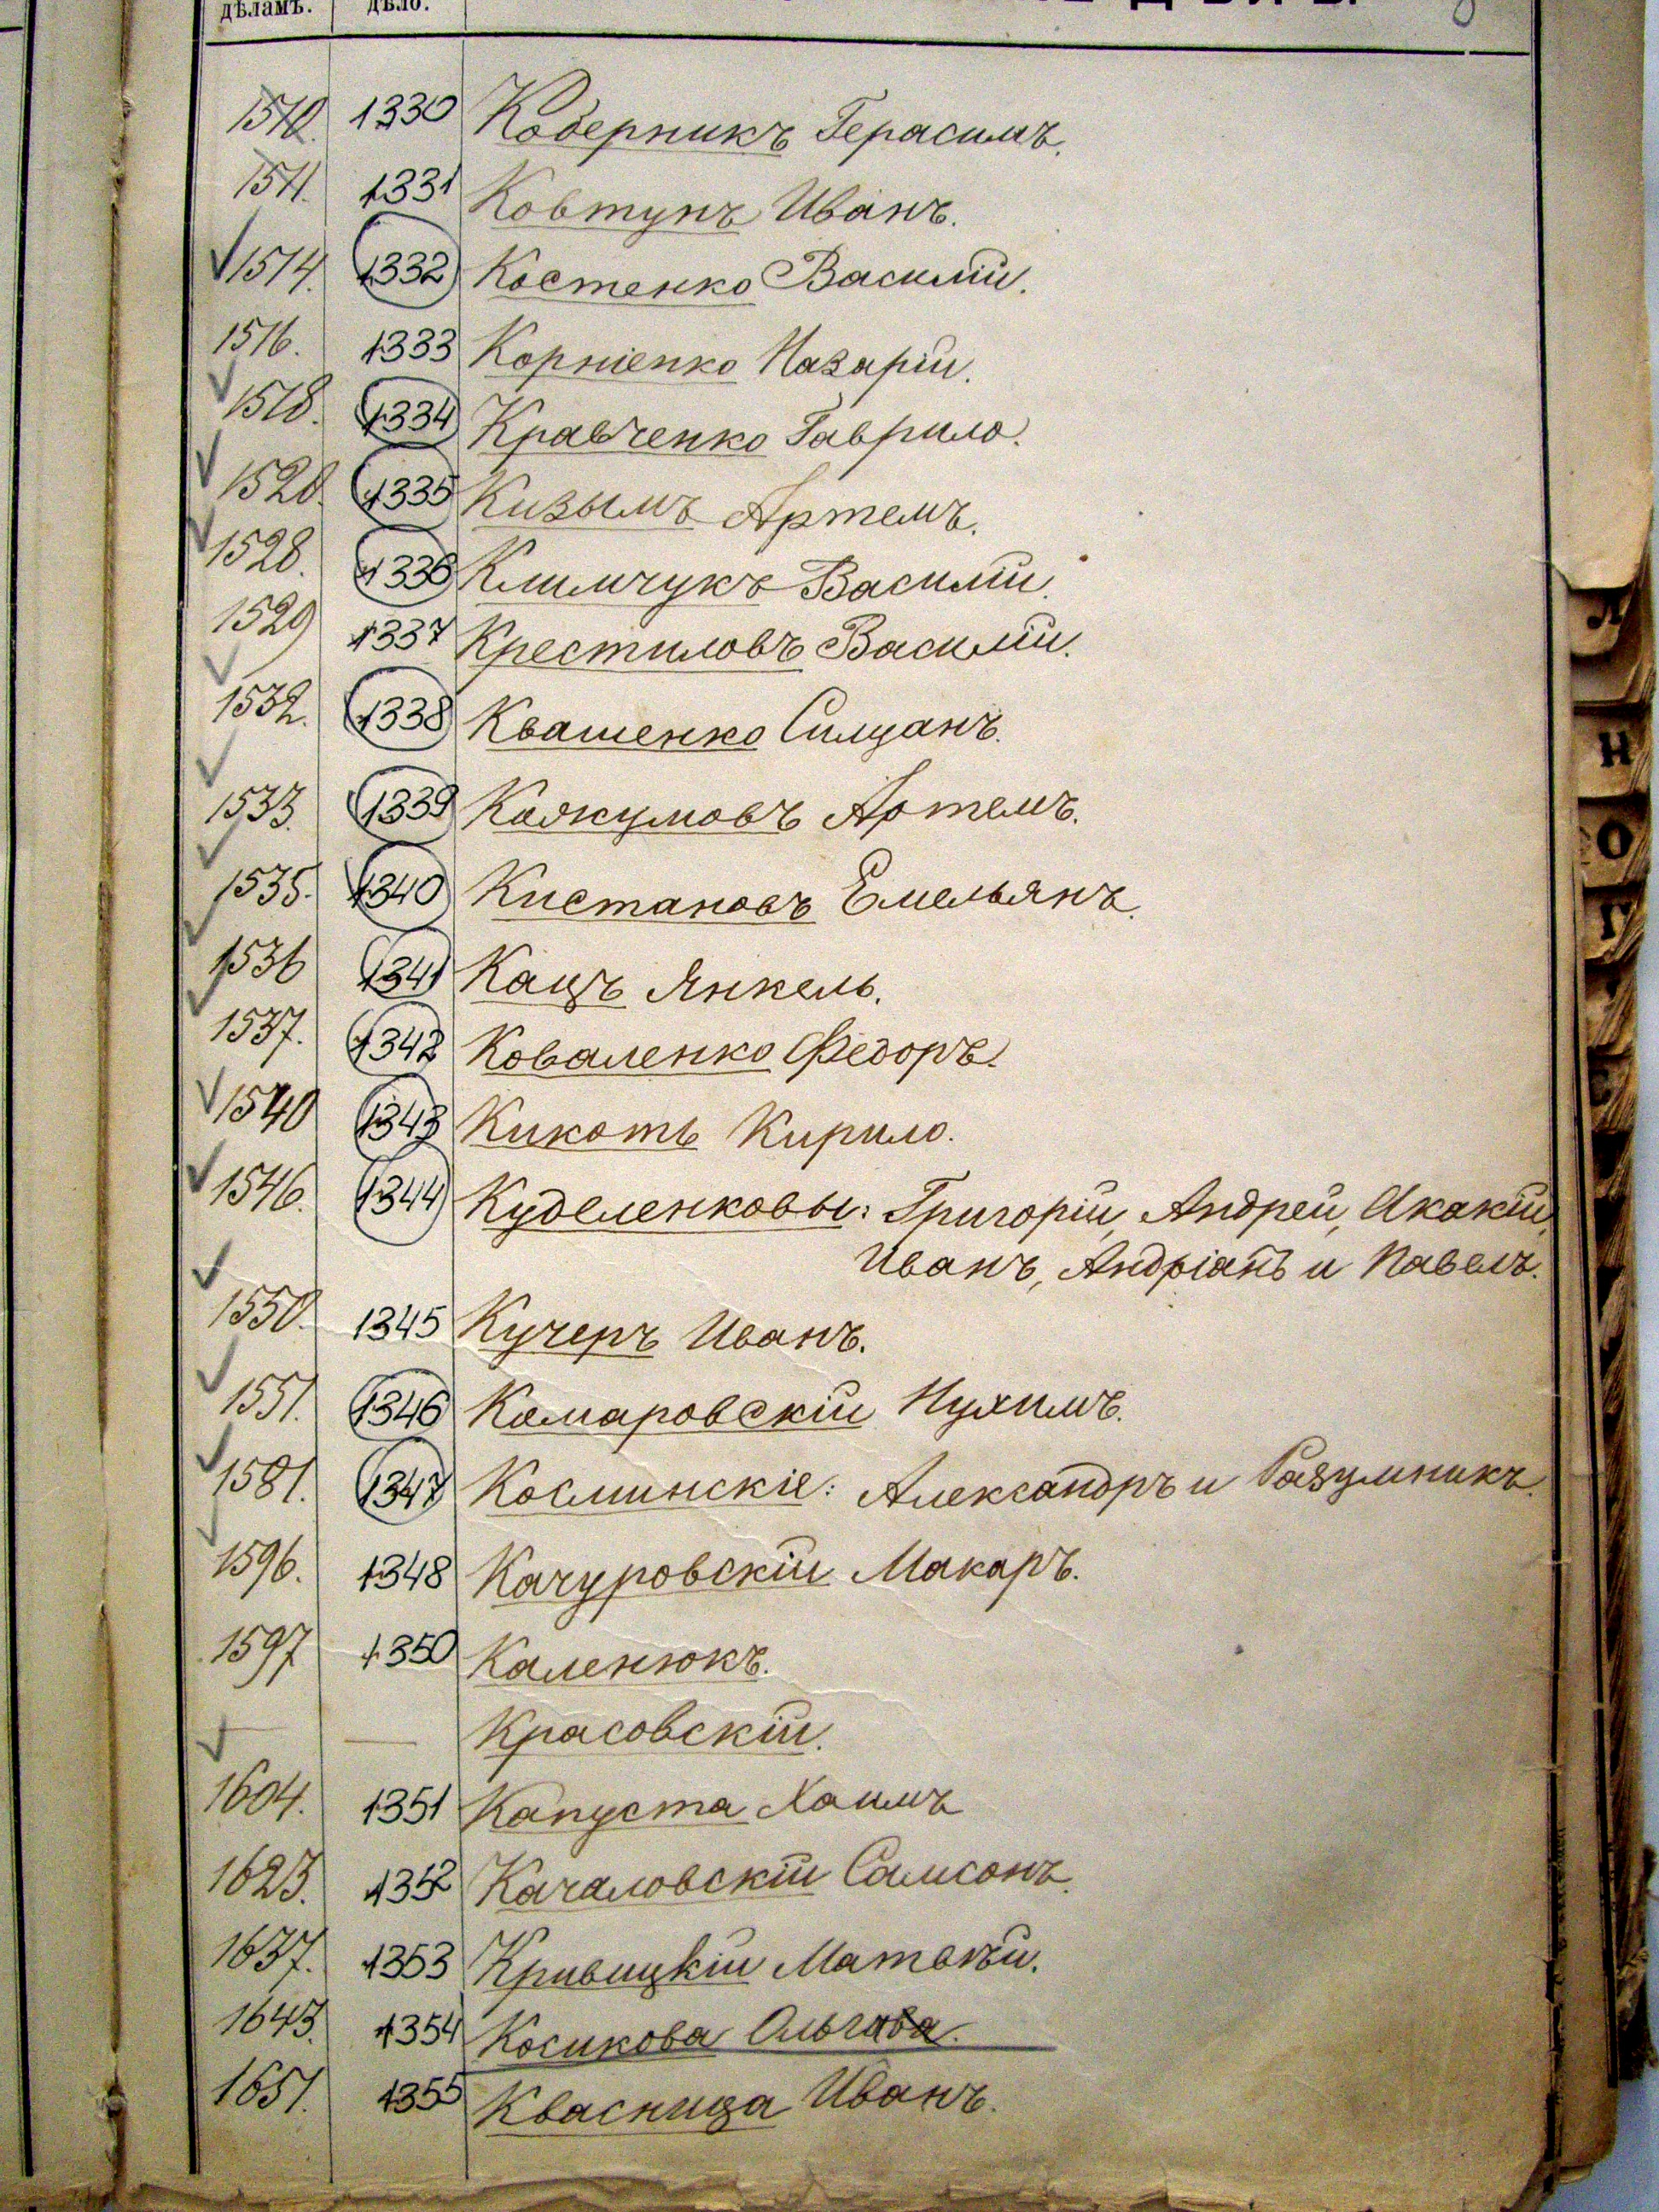 дѣламъ. дѣло.
1510. 1330 Коберникъ Герасимъ.
1511. 1331 Ковтунъ Иванъ.
1514. 1332 Костенко Василій.
1516. 1333 Корніенко Назарій.
1518. 1334 Кравченко Гаврило.
1520. 1335 Кизымъ Артемъ.
1528. 1336 Климчукъ Василій.
1529 1337 Крестиловъ Василій.
1532. 1338 Квашенко Силуанъ.
1533. 1339 Артемъ.
1535. 1340 Кистановъ Емельянъ.
1536 1341 Кацъ Янкель.
1537. 1342 Коваленко Федоръ.
1540 1343 Кикоть Кирило.
1546. 1344 Куделенковы: Григорій, Андрей, Акакій,
Иванъ, Андріанъ и Павелъ.
1550. 1345 Кучеръ Иванъ.
1551. 1346 Комаровскій Нухимъ.
1581. 1347 Косминскіе: Александръ и Разумникъ.
1596. 1348 Качуровскій Макаръ.
1597 1350 Каленюкъ.
— Красовскій.
1604. 1351 Капуста Хаимъ
1623. 1352 Качаловскій Самсонъ.
1637. 1353 Кривицкій Матвѣй.
1643. 1354 Косикова
1651. 1355 Квасница Иванъ.
Л
Н
О
Г